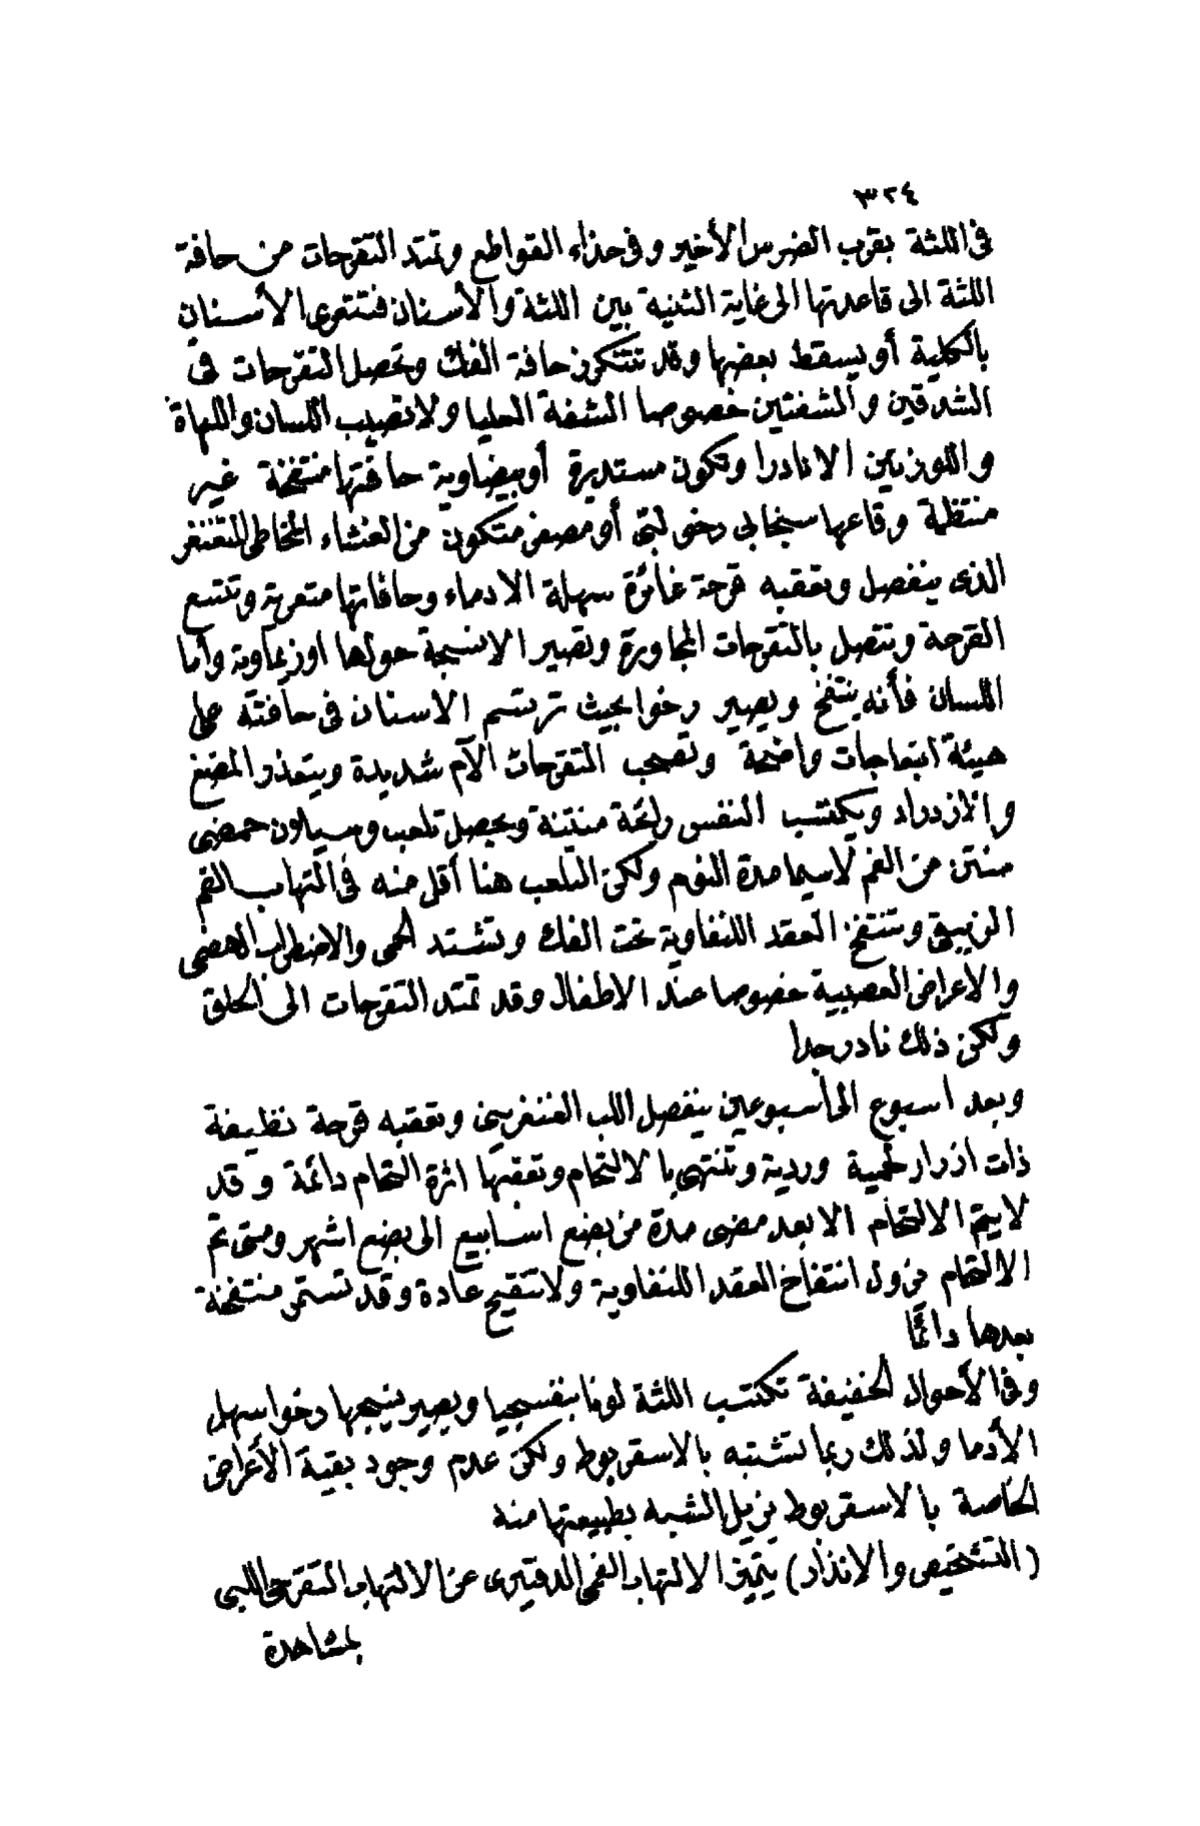 ٣٢٤
فى اللثة بقرب الضرس الأخير وفى حذاء القواطع وتمتد التقرحات من حافة
اللثة الى قاعدتها الى غاية الثنية بين اللثة والأسنان فتتعرى الأسنان
بالكلية أو يسقط بعضها وقد تتنكرز حافة الفك وتحصل التقرحات فى
الشدقين والشفتين خصوصا الشفة العليا ولا تصيب اللسان واللهاة
واللوزتين الا نادرا وتكون مستديرة أو بيضاوية حافتها منتفخة غير
منتظمة وقاعها سنجابى رخو لبنى أو مصفر متكون من الغشاء المخاطى المتغنغر
الذى ينفصل وتعقبه قرحة غائرة سهلة الادماء وحافاتها متعرية وتتسع
القرحة وتتصل بالتقرحات المجاورة وتصير الانسجة حولها اوزيماوية وأما
اللسان فأنه ينتفخ ويصير رخوا بحيث ترتسم الاسنان فى حافته على
هيئة انبعاجات واضحة وتصحب التقرحات الآم شديدة ويتعذر المضغ
والازدراد ويكتسب النفس رائحة منتنة ويحصل تلعب وسيلان حمضى
منتن من الفم لاسيما مدة النوم ولكن التلعب هنا أقل منه فى التهاب الفم
الزئبقى وتنتفخ العقد اللنفاوية تحت الفك وتشتد الحمى والاضطراب الهضمى
والاعراض العصبية خصوصا عند الاطفال وقد تمتد التقرحات الى الحلق
ولكن ذلك نادر جدا
وبعد اسبوع الى أسبوعين ينفصل اللب الغنغرينى وتعقبه قرحة نظيفة
ذات ازرار لحمية وردية وتنتهى بالالتحام وتعقبها اثرة التحام دائمة وقد
لا يتم الالتحام الا بعد مضى مدة من بضع اسابيع الى بضع اشهر ومتى تم
الالتحام يزول انتفاخ العقد اللنفاوية ولا تتقيح عادة وقد تستمر منتفخة
بعدها دائما
وفى الأحوال الخفيفة تكتسب اللثة لونا بنفسجيا ويصير نسيجها رخوا سهل
الأدما ولذلك ربما تشتبه بالاسقربوط ولكن عدم وجود بقية الأعراض
الخاصة بالاسقربوط يزيل الشبه بطبيعتها منه
(التشخيص والانذار) يتميز الالتهاب الفمى الدفتيرى عن الالتهاب التقرحى اللبى
بمشاهدة